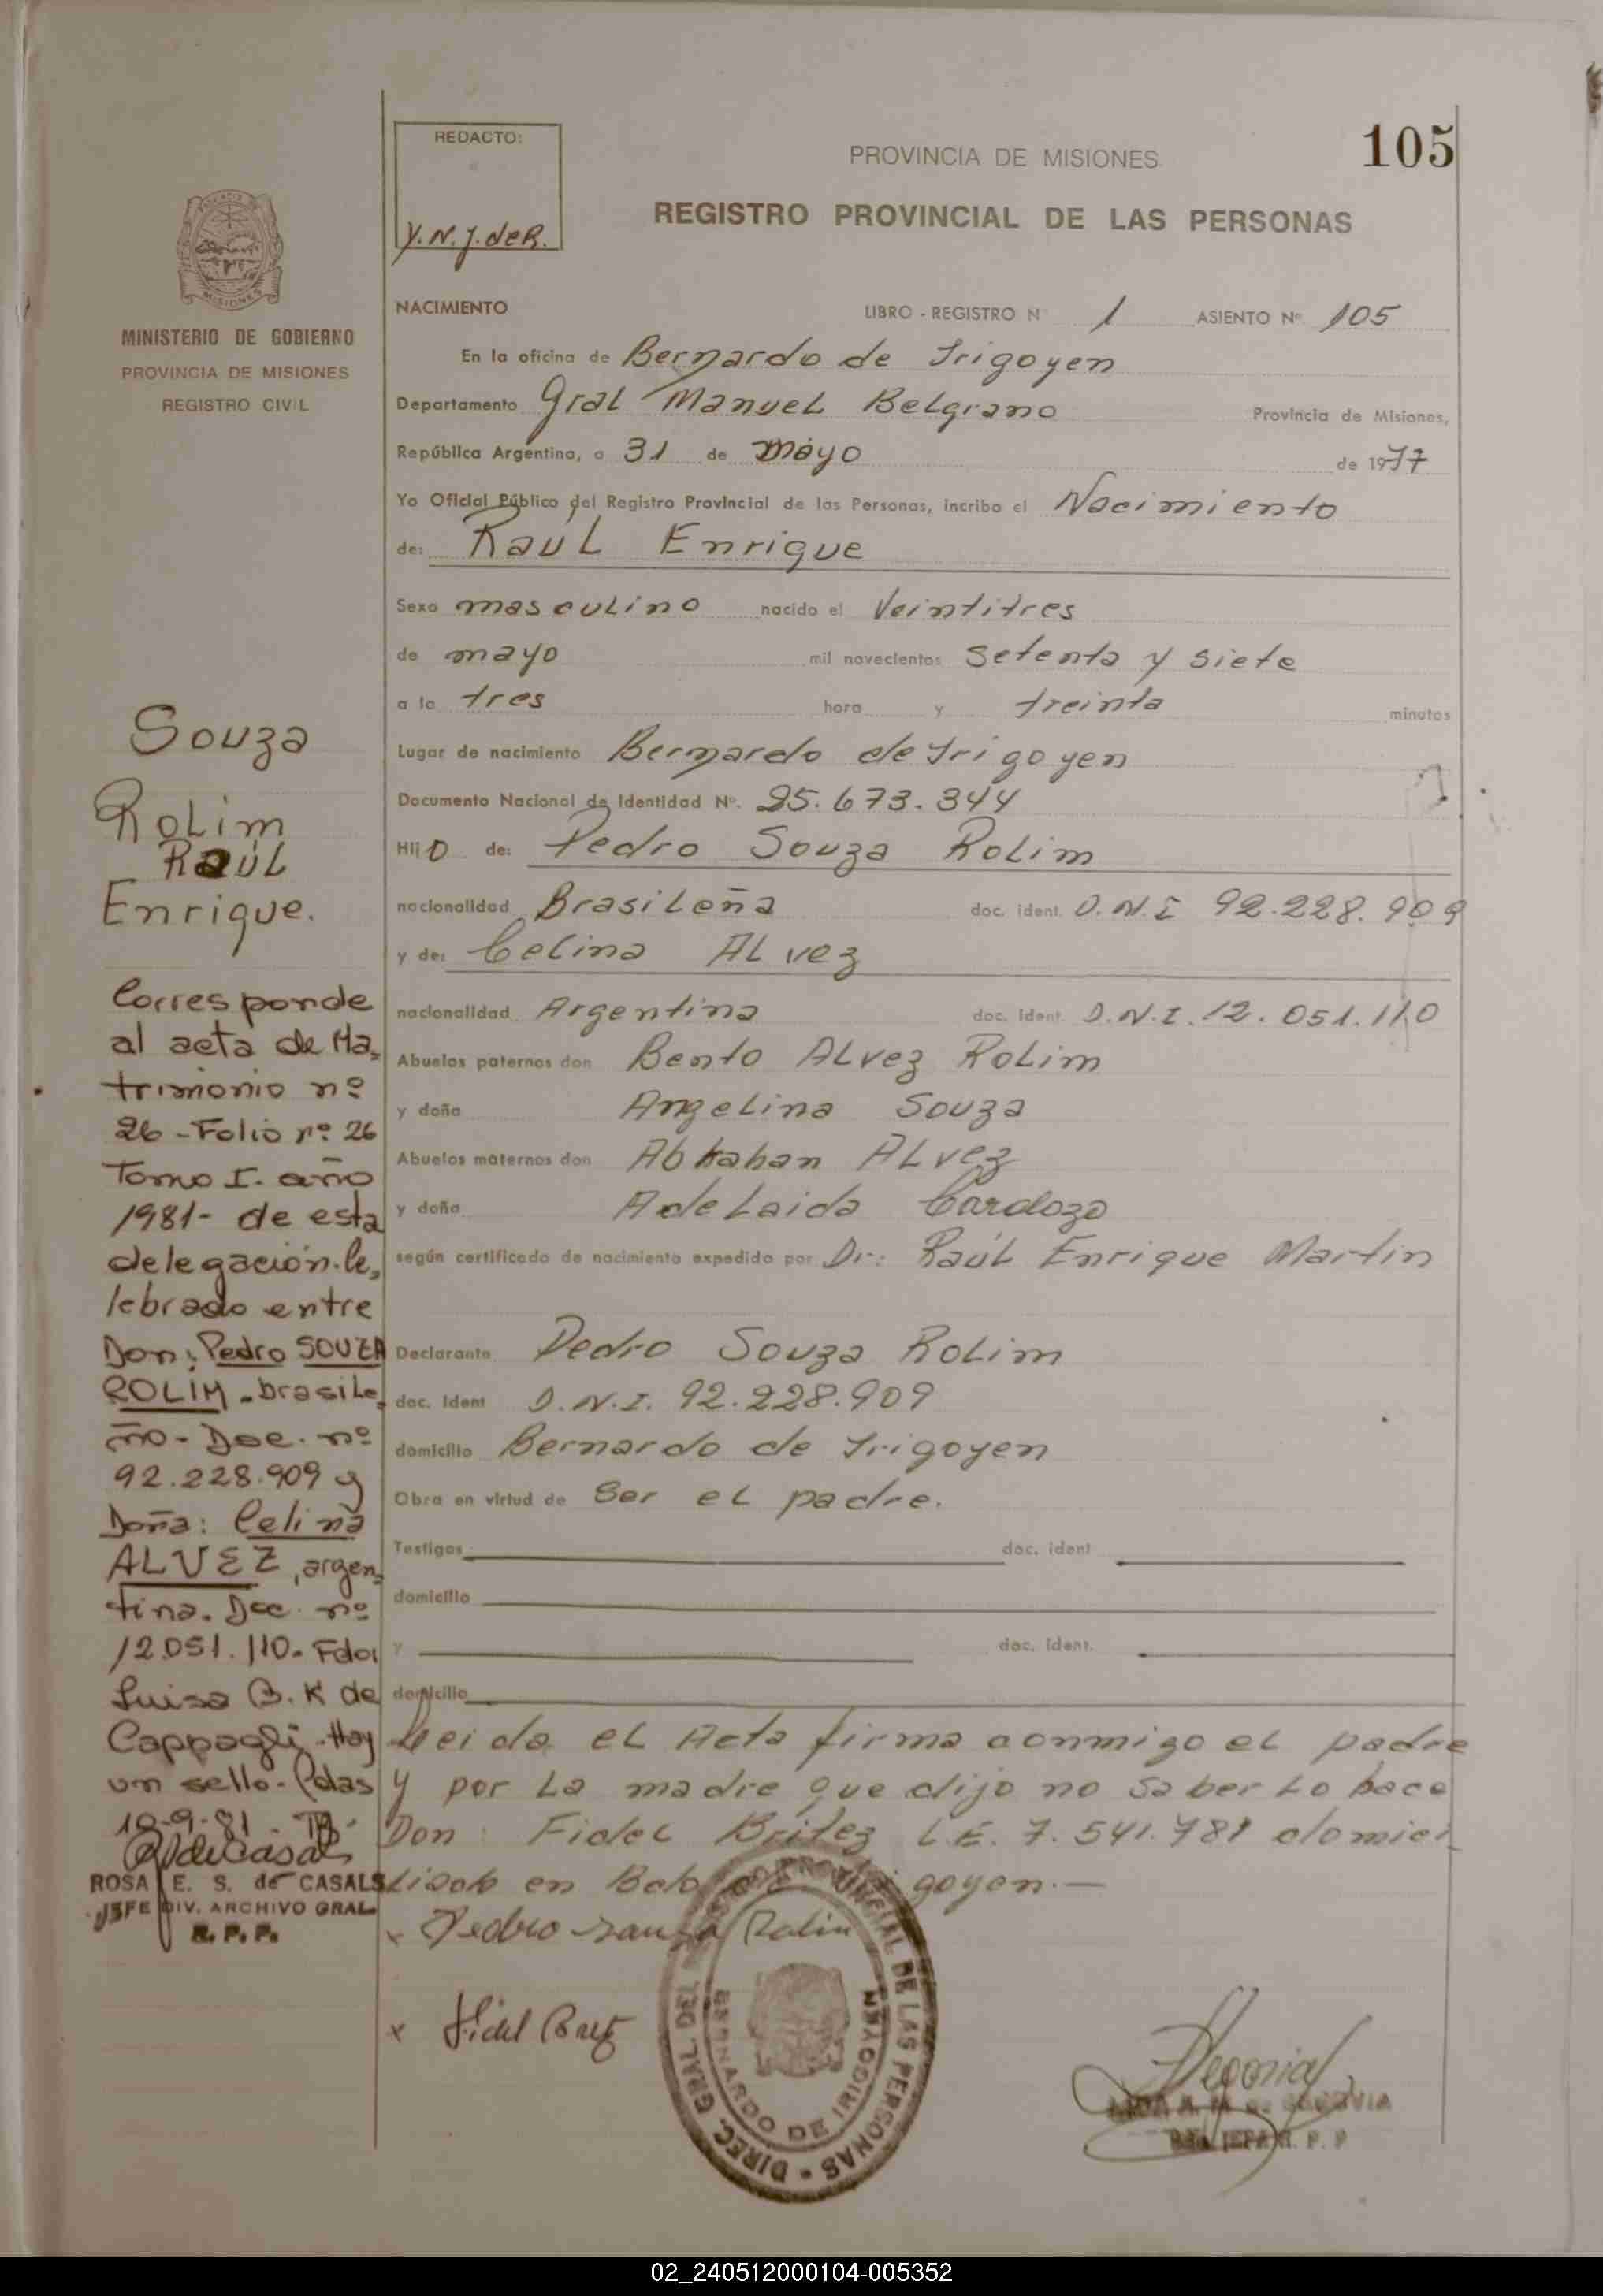 REDACTO:
Y. N. J. de R.
PROVINCIA DE MISIONES
105
REGISTRO PROVINCIAL DE LAS PERSONAS
MISIONES
MINISTERIO DE GOBIERNO
PROVINCIA DE MISIONES
REGISTRO CIVIL
NACIMIENTO LIBRO - REGISTRO N 1 ASIENTO Nº 105
En la oficina de Bernardo de Irigoyen
Departamento Gral Manuel Belgrano Provincia de Misiones,
República Argentina, a 31 de mayo de 1977
Yo Oficial Público del Registro Provincial de las Personas, incribo el Nacimiento
de: Raúl Enrique
Sexo masculino nacido el Veintitres
de mayo mil novecientos setenta y siete
a la tres hora y treinta minutos
Lugar de nacimiento Bernardo de Irigoyen
Documento Nacional de Identidad Nº. 25.673.344
Hijo de: Pedro Souza Rolim
nacionalidad Brasileña doc. ident. D.N.I 92.228.909
y de: Celina Alvez
nacionalidad Argentina doc. ident. D.N.I. 12.051.110
Abuelos paternos don Bento Alvez Rolim
y doña Angelina Souza
Abuelos maternos don Abrahan Alvez
y doña Adelaida Cardozo
según certificado de nacimiento expedido por Dr: Raúl Enrique Martin
Declarante Pedro Souza Rolim
doc. ident D.N.I. 92.228.909
domicilio Bernardo de Irigoyen
Obra en virtud de Ser el padre.
Testigos doc. ident
domicilio
y doc. ident.
domicilio
Leida el Acta firma conmigo el padre
y por la madre que dijo no saber lo hace
Don: Fidel Britez L.E. 7.541.781 domici
liado en Bdo de Irigoyen.—
x Pedro Souza Rolin
x Fidel Britez
Souza
Rolim
Raúl
Enrique.
Corresponde
al acta de Ma=
trimonio nº
26 - Folio nº 26
Tomo I. año
1981- de esta
delegación. Ce=
lebrado entre
Don: Pedro SOUZA
ROLIM - brasile=
ño - Doc. nº
92.228.909 y
Doña: Celina
ALVEZ, argen=
tina. Doc. nº
12.051.110. Fdo:
Luisa B. K de
Cappagli. Hay
un sello. Pdas
18-9-81.
ROSA E. S. de CASALS
JEFE DIV. ARCHIVO GRAL.
R. P. P.
DIREC. GRAL. DEL REGISTRO PROVINCIAL DE LAS PERSONAS
BERNARDO DE IRIGOYEN
R. P. P
02_240512000104-005352